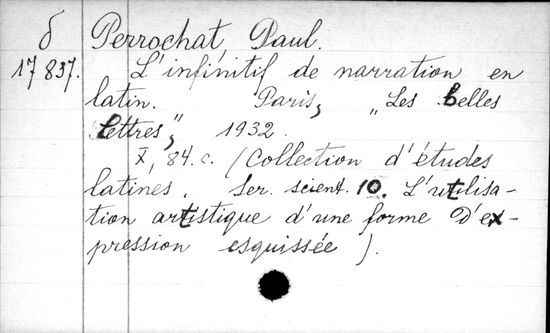 б Perrochat, Paul.
17837. L'infinitif de narration en
latin. Paris, „Les belles
lettres", 1932.
X, 84 c. (Collection d'études
latines. Ser. scient. 10. L'utilisa-
tion artistique d'une forme d'ex-
pression esquissée).